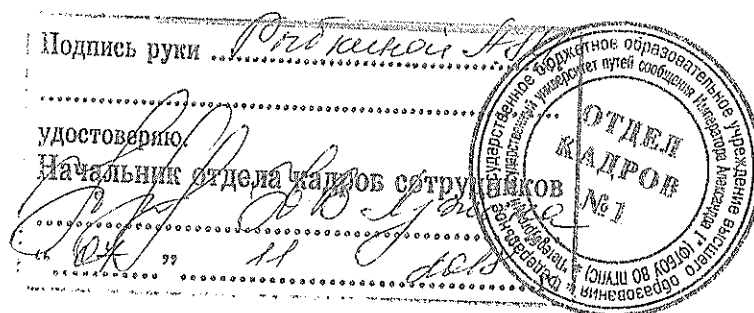 Подпись руки Рыбкиной
удостоверяю.
Начальник отдела кадров сотрудников
" 07 " 11
Федеральное государственное бюджетное образовательное учреждение высшего образования
государственный университет путей сообщения Императора Александра I" (ФГБОУ ВО ПГУПС)
ОТДЕЛ
КАДРОВ
№1